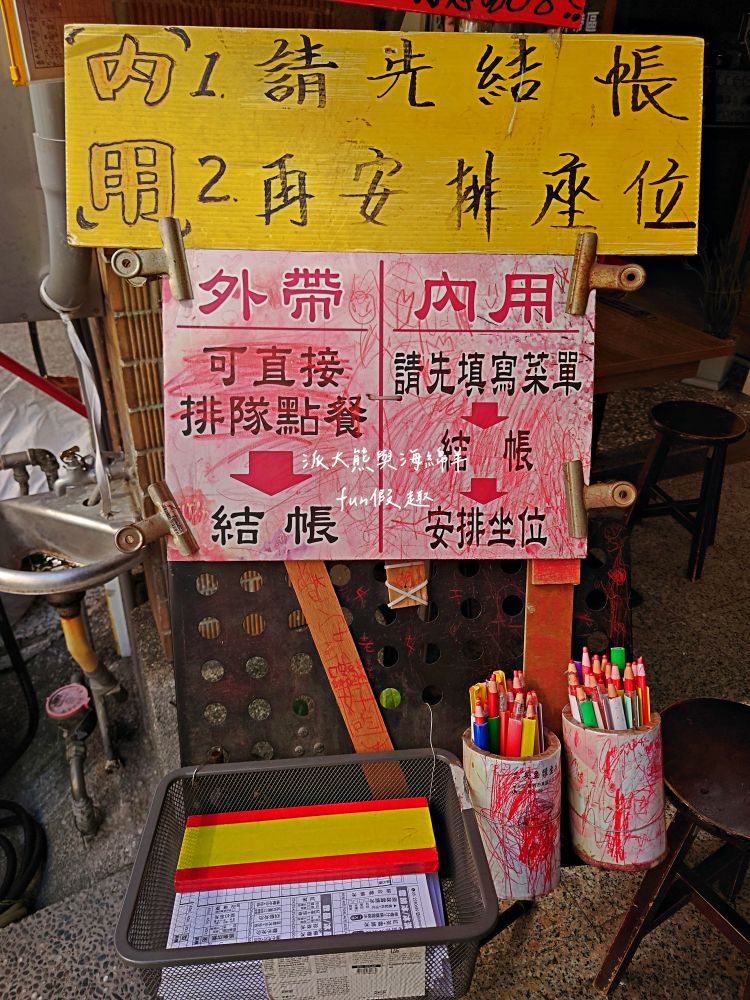 內用
1. 請先結帳
2. 再安排座位
外帶
可直接
排隊點餐
結帳
內用
請先填寫菜單
結帳
安排坐位
派大熊與海綿羊
fun假趣